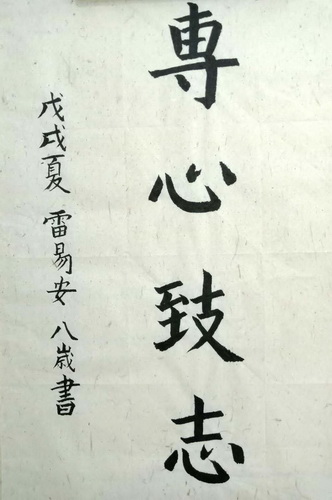 専心致志
戊戌夏 雷易安 八歳書